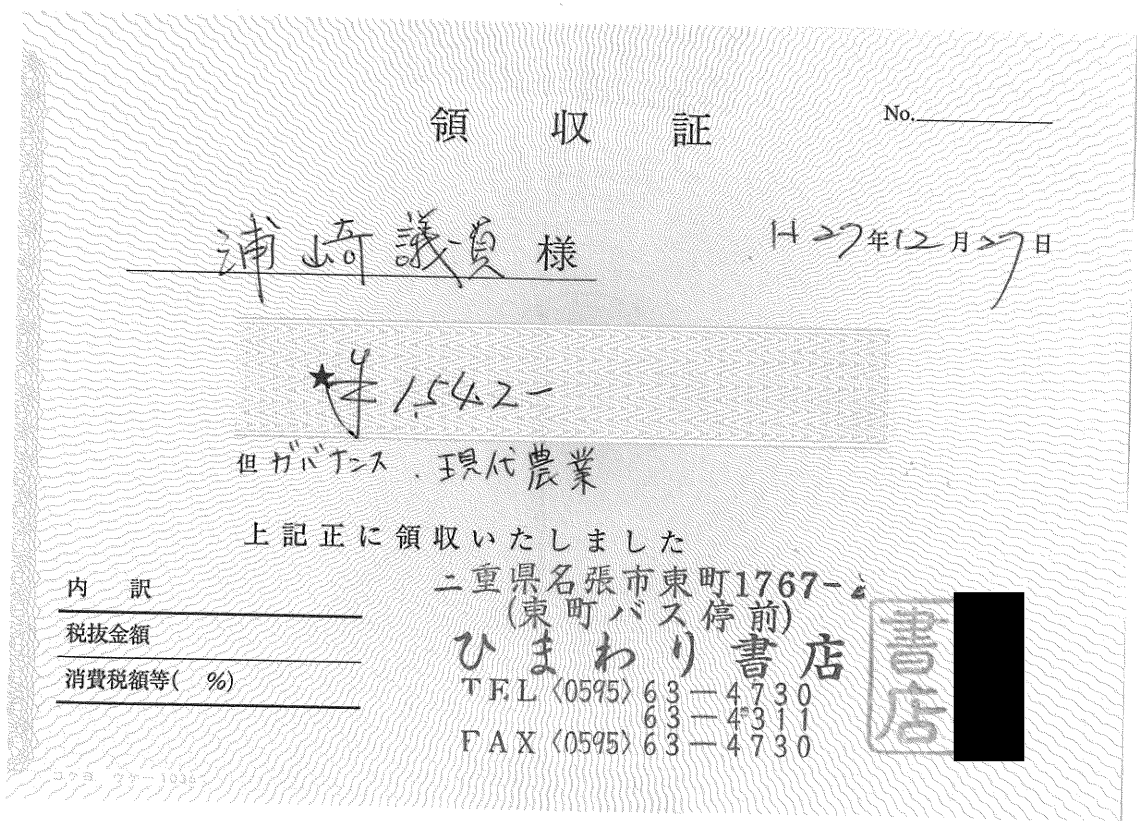 領収証
No.
浦崎議員 様
H27年12月27日
★¥1,542-
但 ガバナンス . 現代農業
上記正に領収いたしました
内 訳
税抜金額
消費税額等( %)
三重県名張市東町1767-
(東町バス停前)
ひまわり書店
TEL〈0595〉63-4730
63-4311
FAX〈0595〉63-4730
書店
コクヨ ウケ-1035